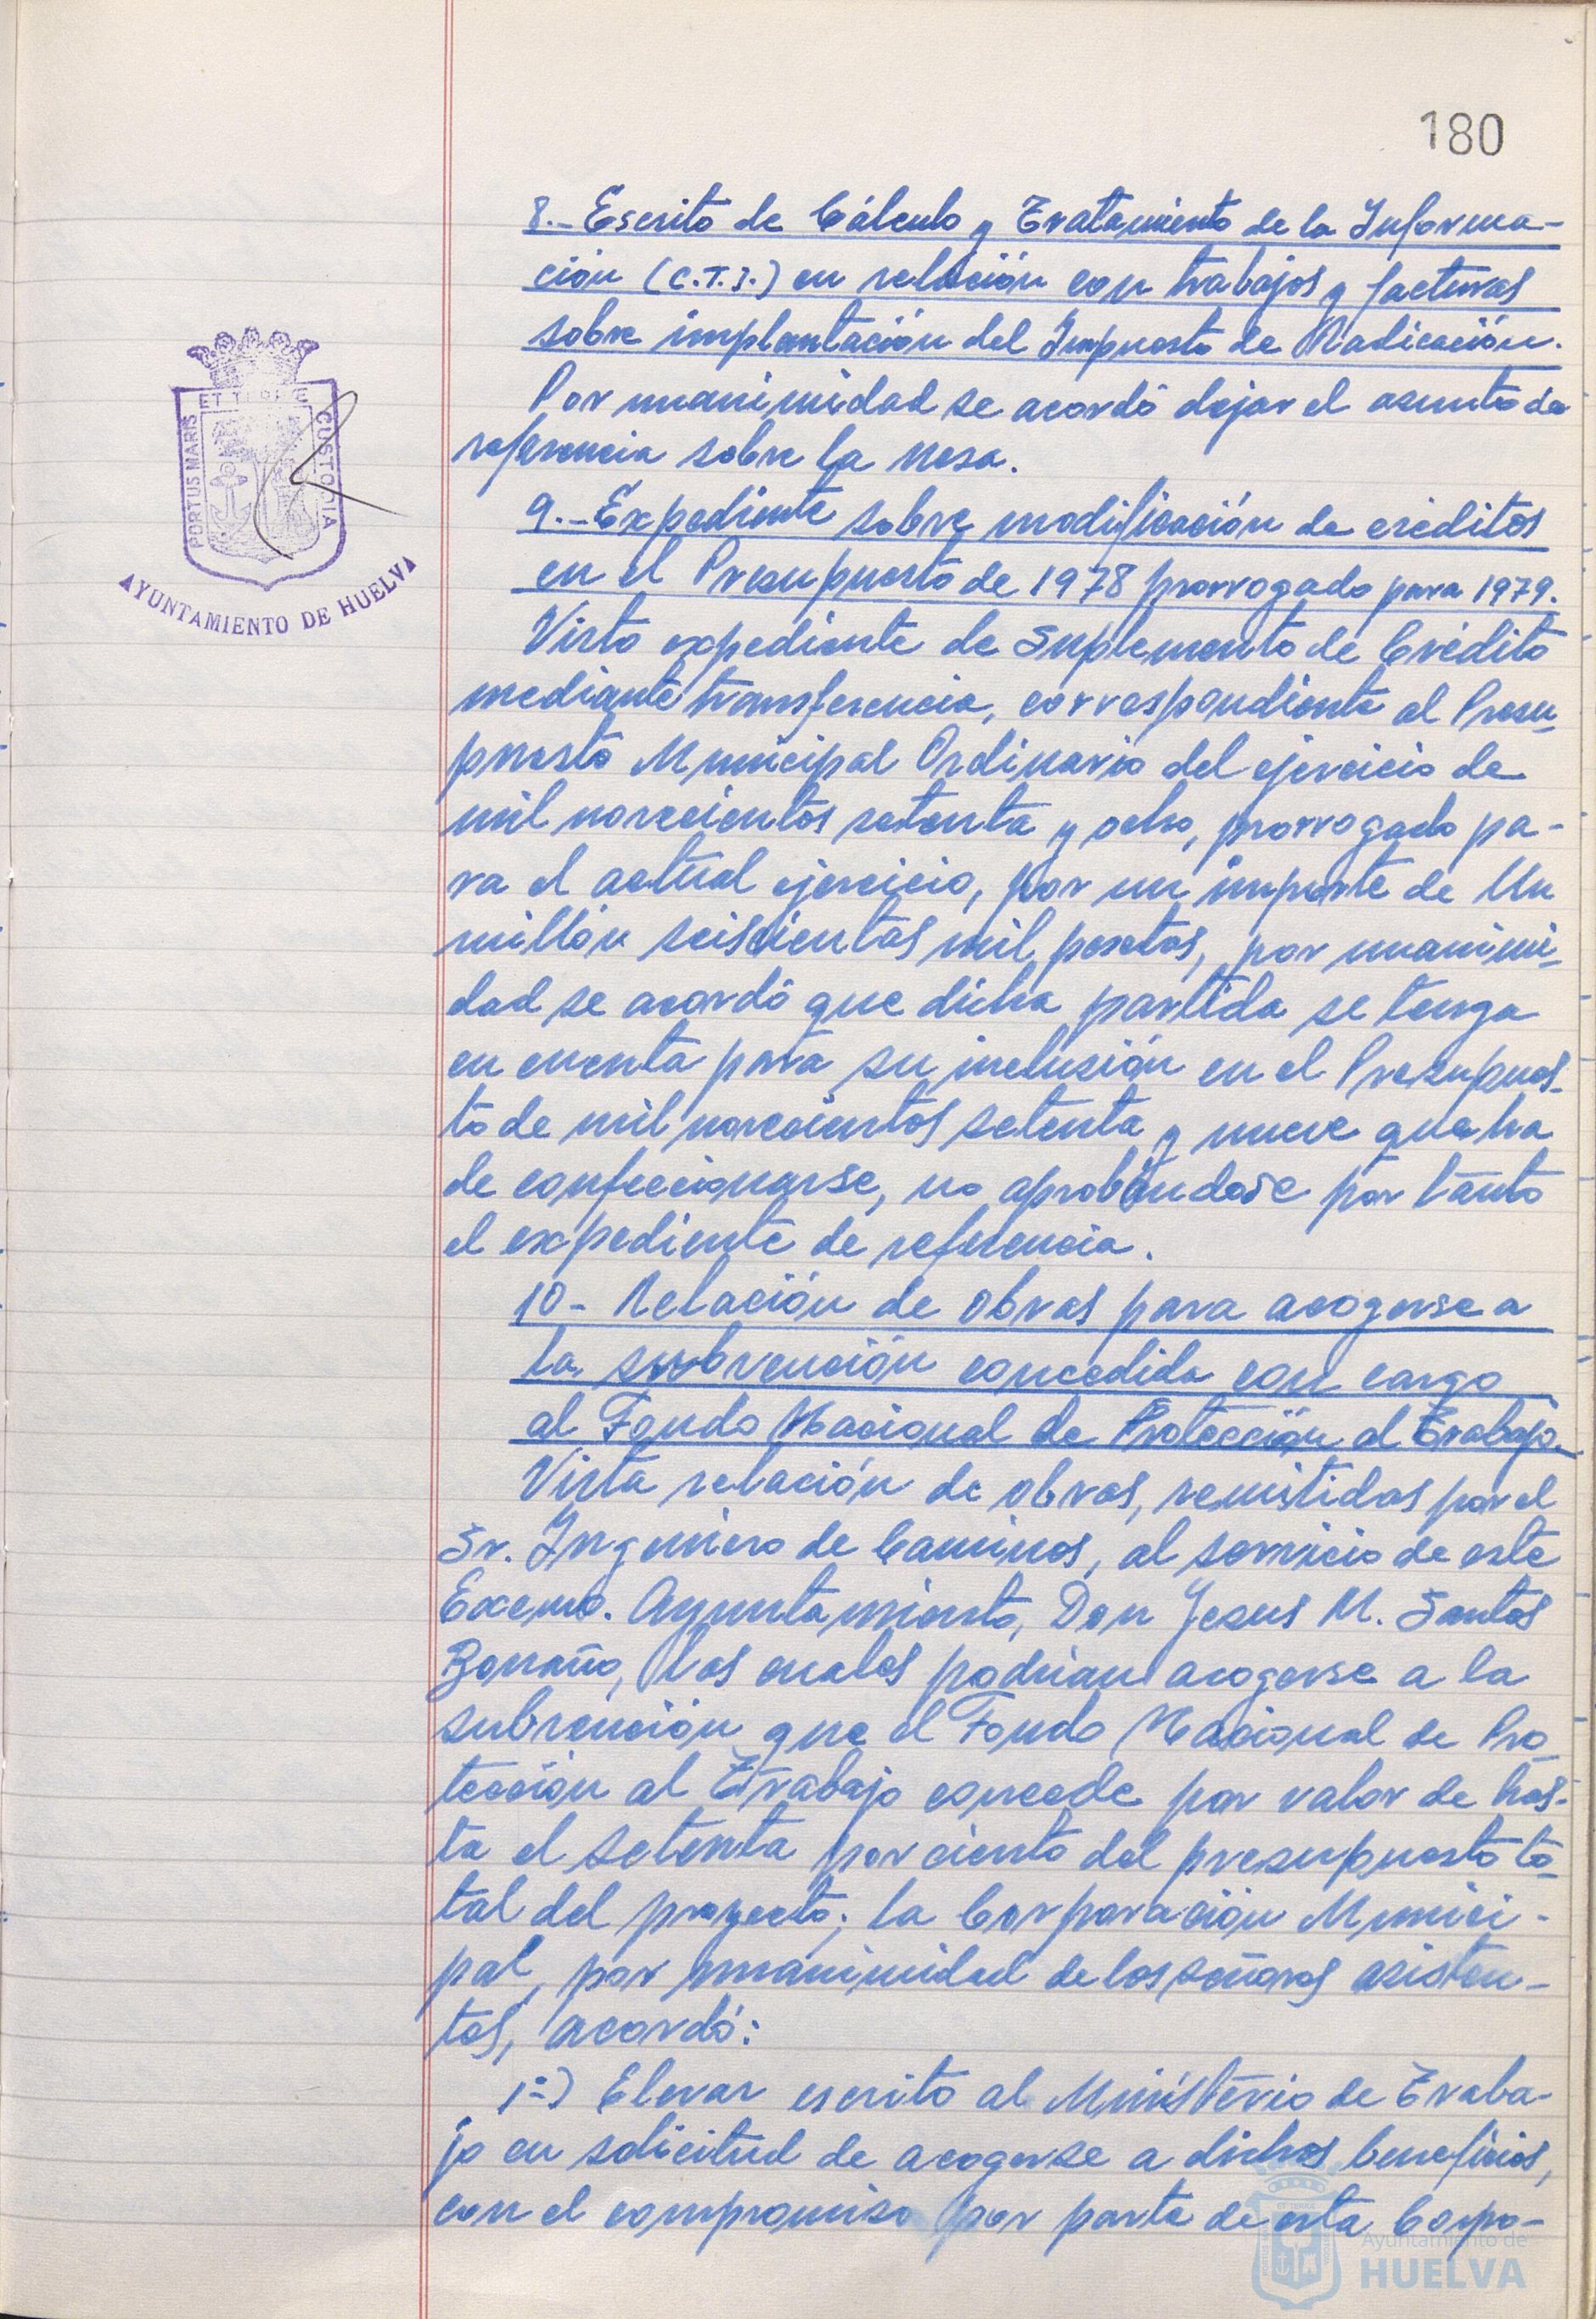 180
8.- Escrito de Cálculo y Tratamiento de la Informa-
ción (C.T.I.) en relación con trabajos y facturas
sobre implantación del Impuesto de Radicación.
Por unanimidad se acordó dejar el asunto de
referencia sobre la mesa.
9.- Expediente sobre modificación de créditos
en el Presupuesto de 1978 prorrogado para 1979.
Visto expediente de Suplemento de Crédito
mediante transferencia, correspondiente al Presu-
puesto Municipal Ordinario del ejercicio de
mil novecientos setenta y ocho, prorrogado pa-
ra el actual ejercicio, por un importe de Un
millón seiscientas mil pesetas, por unanimi-
dad se acordó que dicha partida se tenga
en cuenta para su inclusión en el Presupues-
to de mil novecientos setenta y nueve que ha
de confeccionarse, no aprobándose por tanto
el expediente de referencia.
10- Relación de obras para acogerse a
la subvención concedida con cargo
al Fondo Nacional de Protección al Trabajo.
Vista relación de obras, remitidas por el
Sr. Ingeniero de Caminos, al servicio de este
Excmo. Ayuntamiento, Don Jesus M. Santos
las cuales podrían acogerse a la
subvención que el Fondo Nacional de Pro-
tección al Trabajo concede por valor de has-
ta el setenta por ciento del presupuesto to-
tal del proyecto; la Corporación Munici-
pal, por unanimidad de los señores asisten-
tes, acordó:
1º) Elevar escrito al Ministerio de Traba-
jo en solicitud de acogerse a dichos beneficios,
con el compromiso por parte de esta Corpo-
PORTUS MARIS
ET TERRE
CUSTODIA
AYUNTAMIENTO DE HUELVA
Ayuntamiento de
HUELVA